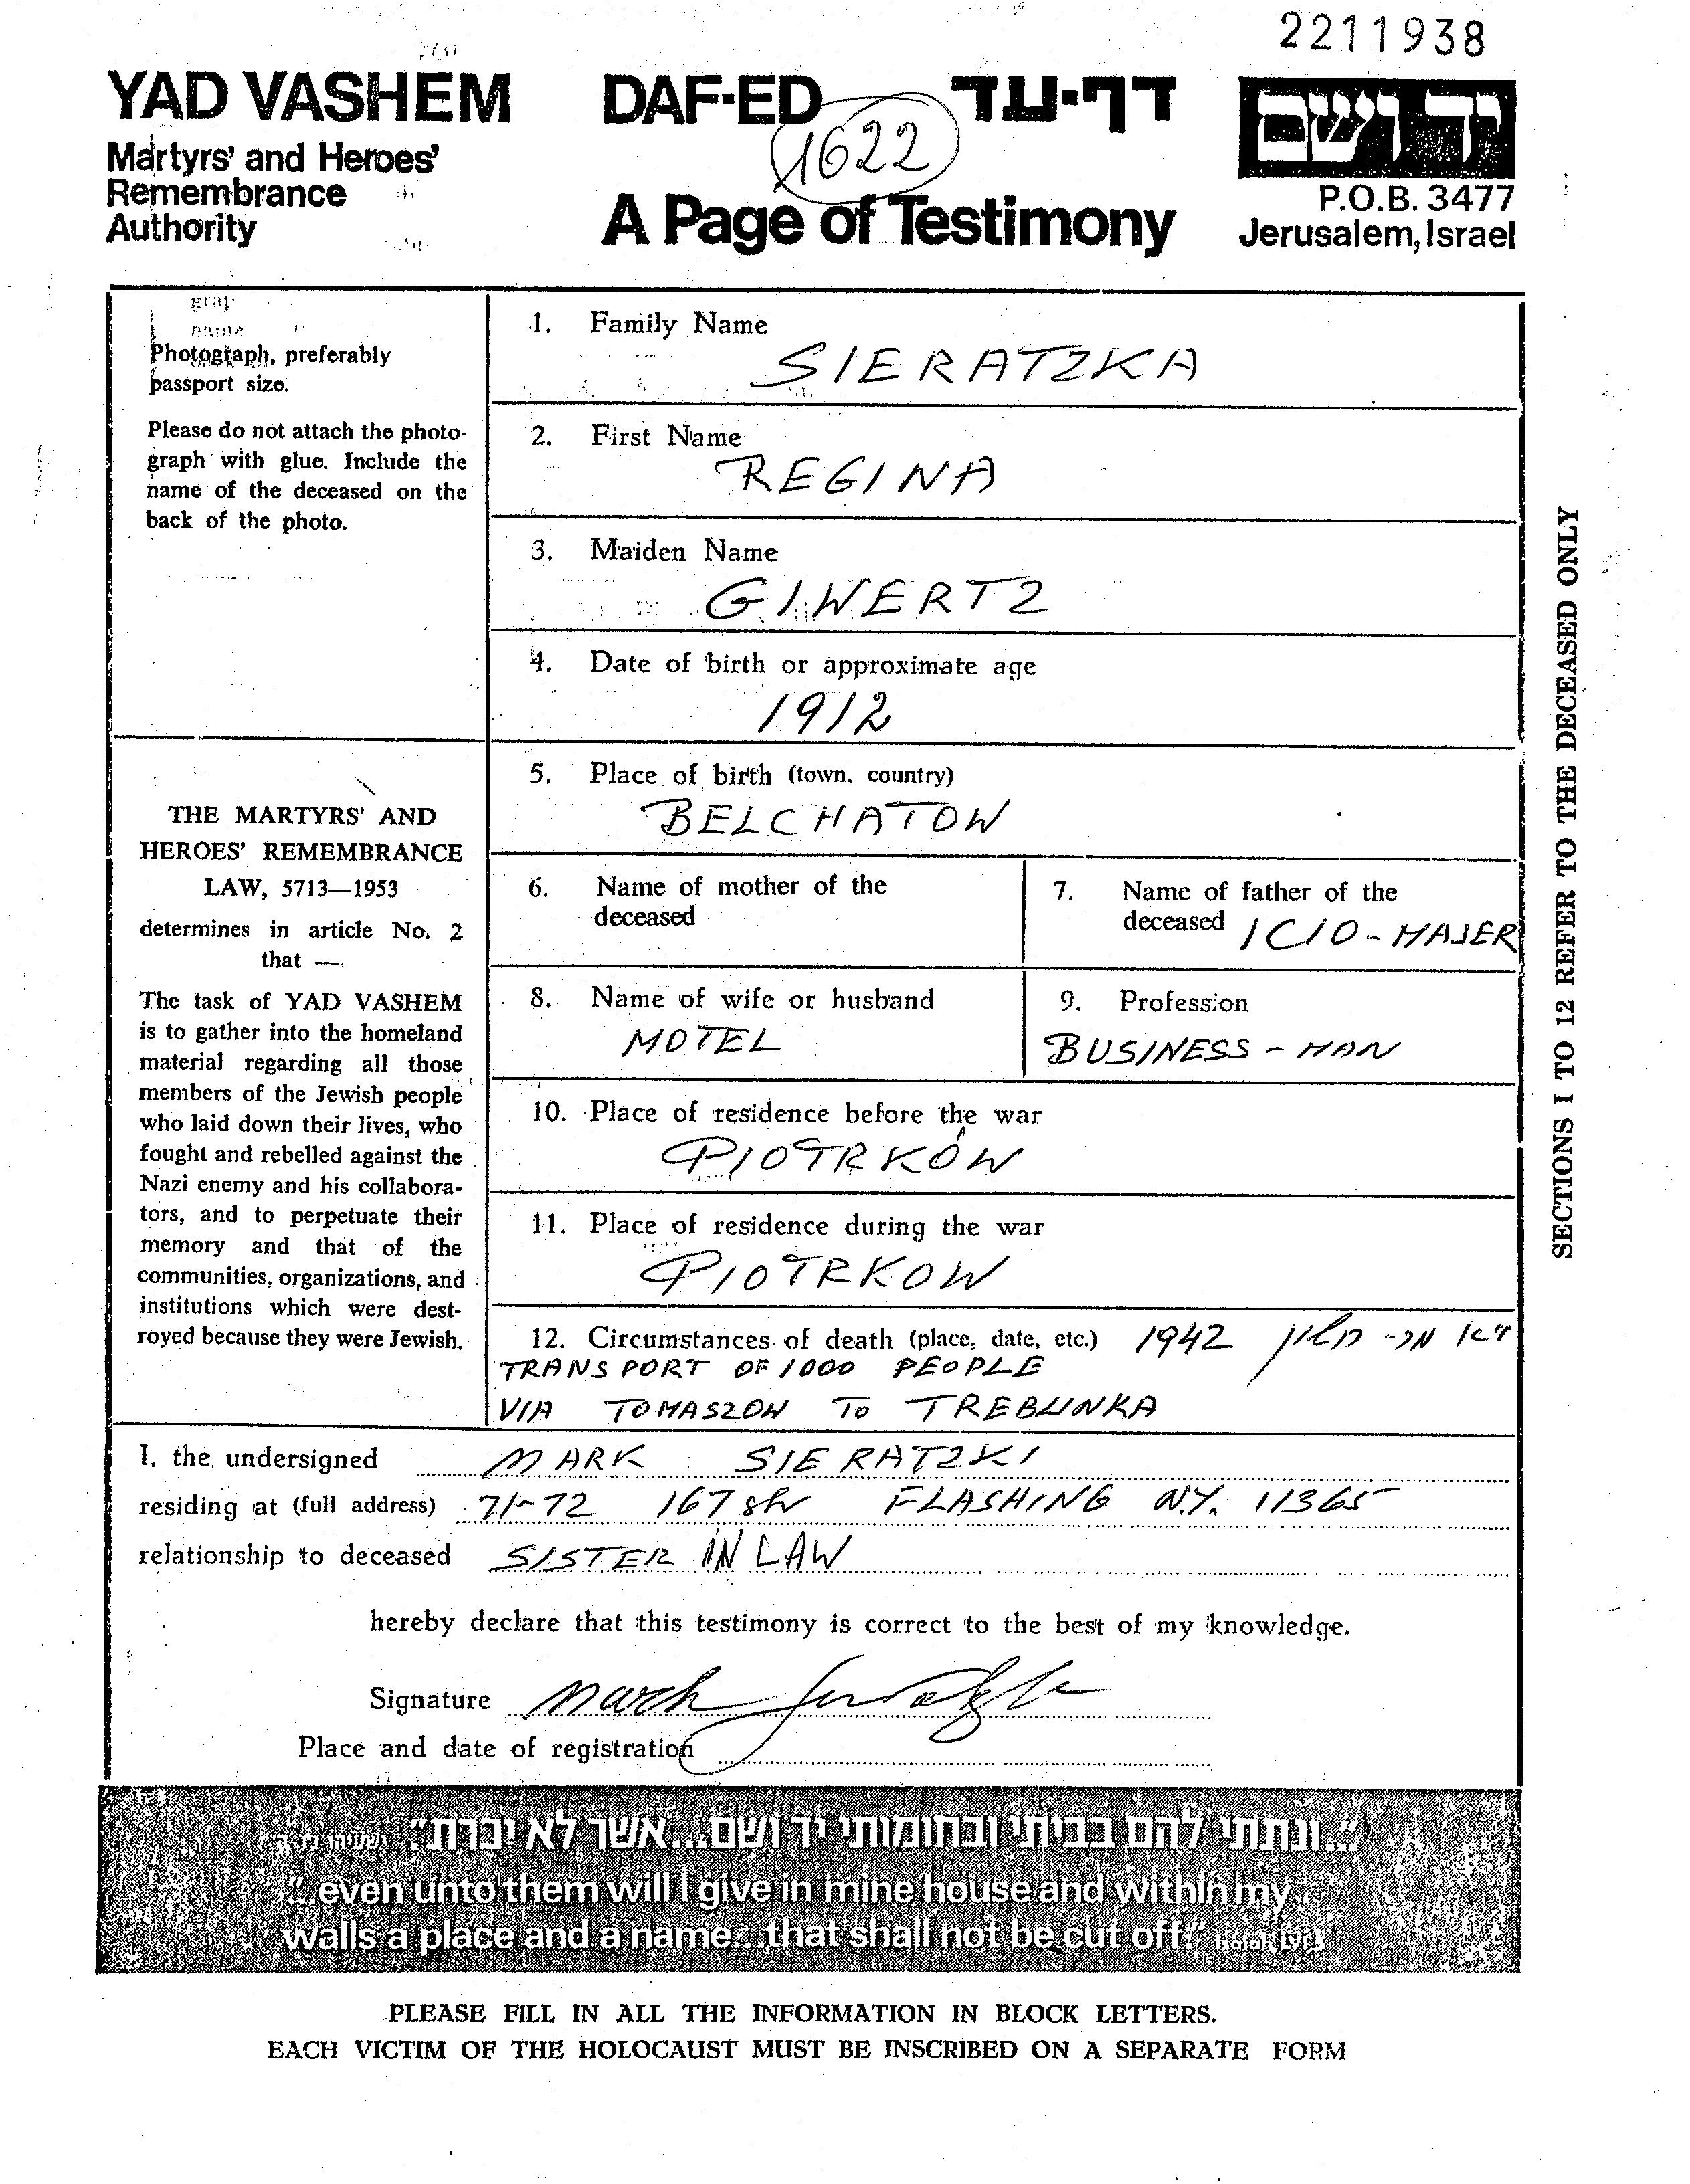 2211938
YAD VASHEM
Martyrs' and Heroes'
Remembrance
Authority
DAF-ED דף-עד
1622
A Page of Testimony
ידושם
P.O.B. 3477
Jerusalem, Israel
Photograph, preferably
passport size.
Please do not attach the photo-
graph with glue. Include the
name of the deceased on the
back of the photo.
THE MARTYRS' AND
HEROES' REMEMBRANCE
LAW, 5713—1953
determines in article No. 2
that —
The task of YAD VASHEM
is to gather into the homeland
material regarding all those
members of the Jewish people
who laid down their lives, who
fought and rebelled against the
Nazi enemy and his collabora-
tors, and to perpetuate their
memory and that of the
communities, organizations, and
institutions which were dest-
royed because they were Jewish.
1. Family Name
SIERATZKA
2. First Name
REGINA
3. Maiden Name
GIWERTZ
4. Date of birth or approximate age
1912
5. Place of birth (town, country)
BELCHATOW
6. Name of mother of the
deceased
7. Name of father of the
deceased ICIO-MAJER
8. Name of wife or husband
MOTEL
9. Profession
BUSINESS-MAN
10. Place of residence before the war
PIOTRKÓW
11. Place of residence during the war
PIOTRKOW
12. Circumstances of death (place, date, etc.) 1942
TRANSPORT OF 1000 PEOPLE
VIA TOMASZOW TO TREBLINKA
SECTIONS 1 TO 12 REFER TO THE DECEASED ONLY
I, the undersigned MARK SIERATZKI
residing at (full address) 71-72 167 str FLASHING N.Y. 11365
relationship to deceased SISTER IN LAW
hereby declare that this testimony is correct to the best of my knowledge.
Signature Mark
Place and date of registration
"...ונתתי להם בביתי ובחומותי יד ושם...אשר לא יכרת".
"...even unto them will I give in mine house and within my
walls a place and a name...that shall not be cut off:" Isaiah, LVI, 5
PLEASE FILL IN ALL THE INFORMATION IN BLOCK LETTERS.
EACH VICTIM OF THE HOLOCAUST MUST BE INSCRIBED ON A SEPARATE FORM